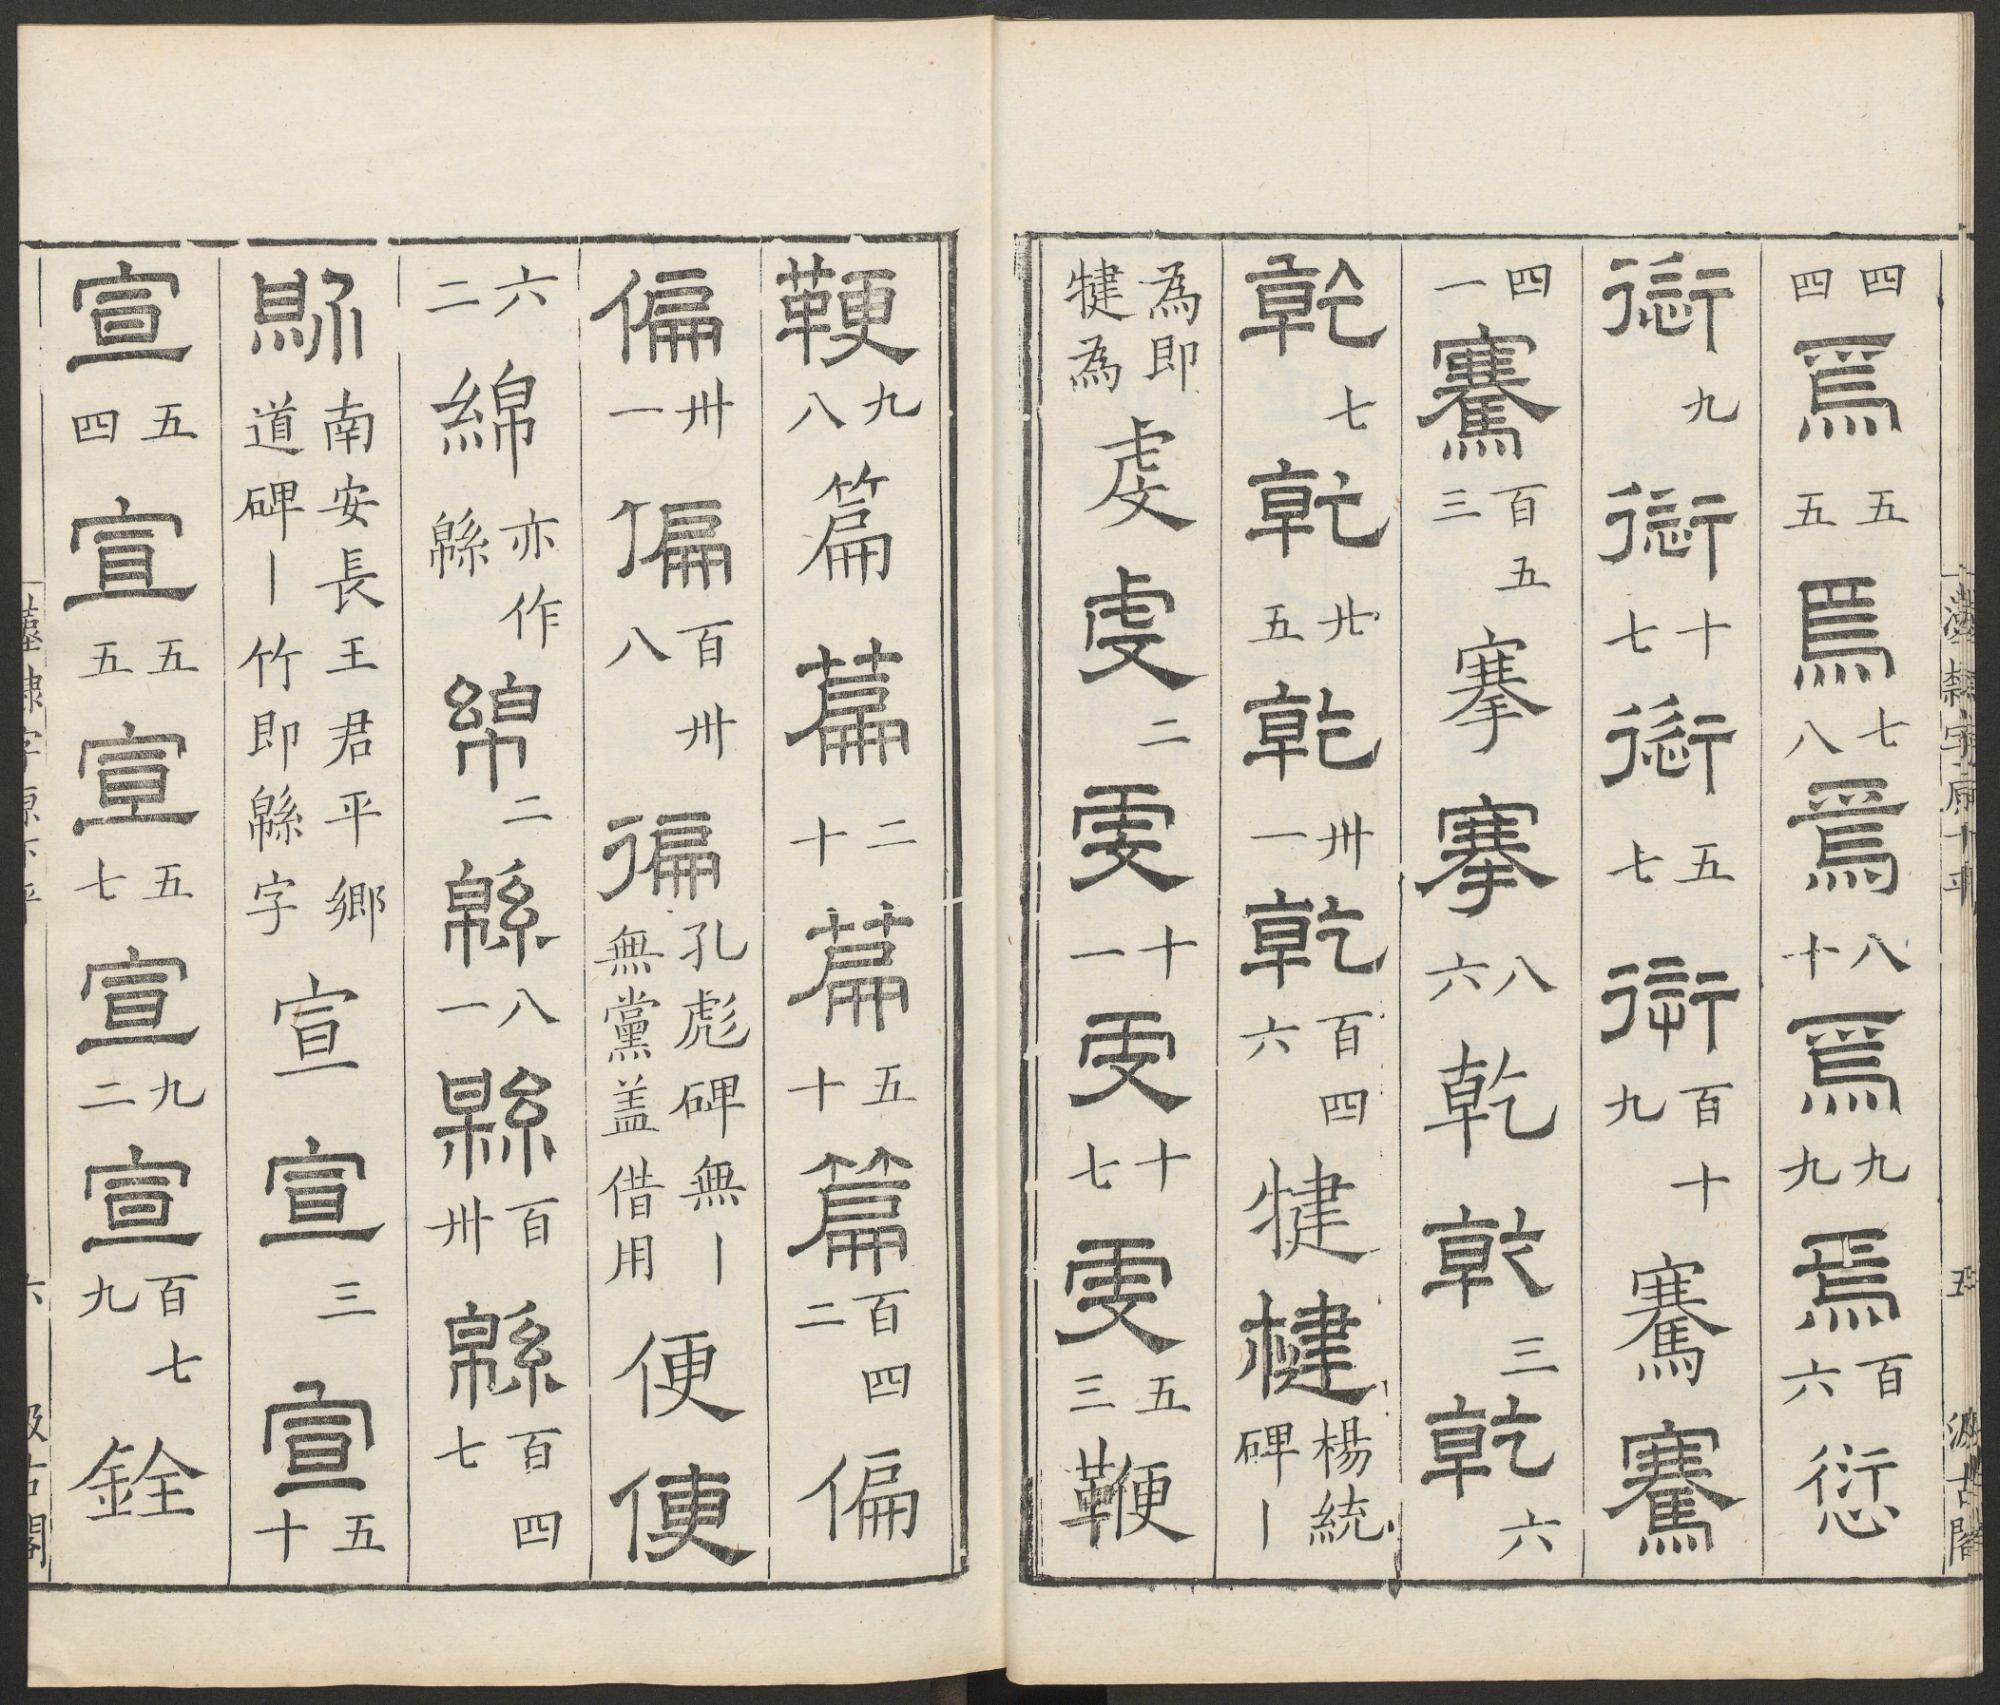 四四焉五五焉七八焉八十焉九九焉百六愆
愆九愆十七愆五七衍百十九騫騫
四一騫百五三搴搴八六乾乾三乾六
乾七乾廿五乾卅一乾百四六犍楗楊統碑丨
為即犍為虔虔二虔十一虔十七虔五三鞭
鞭九八篇篇二十篇五十篇百四二偏
偏卅一偏百卅八徧孔彪碑無丨無黨盖借用便便
六二綿亦作緜綿二緜八一緜百卅緜百四七
南安長王君平鄉道碑丨竹即緜字宣宣三宣五十
宣五四宣五五宣五七宣九二宣百七九銓
漢隸字原下平
五
汲古閣
漢隸字原下平
六
汲古閣